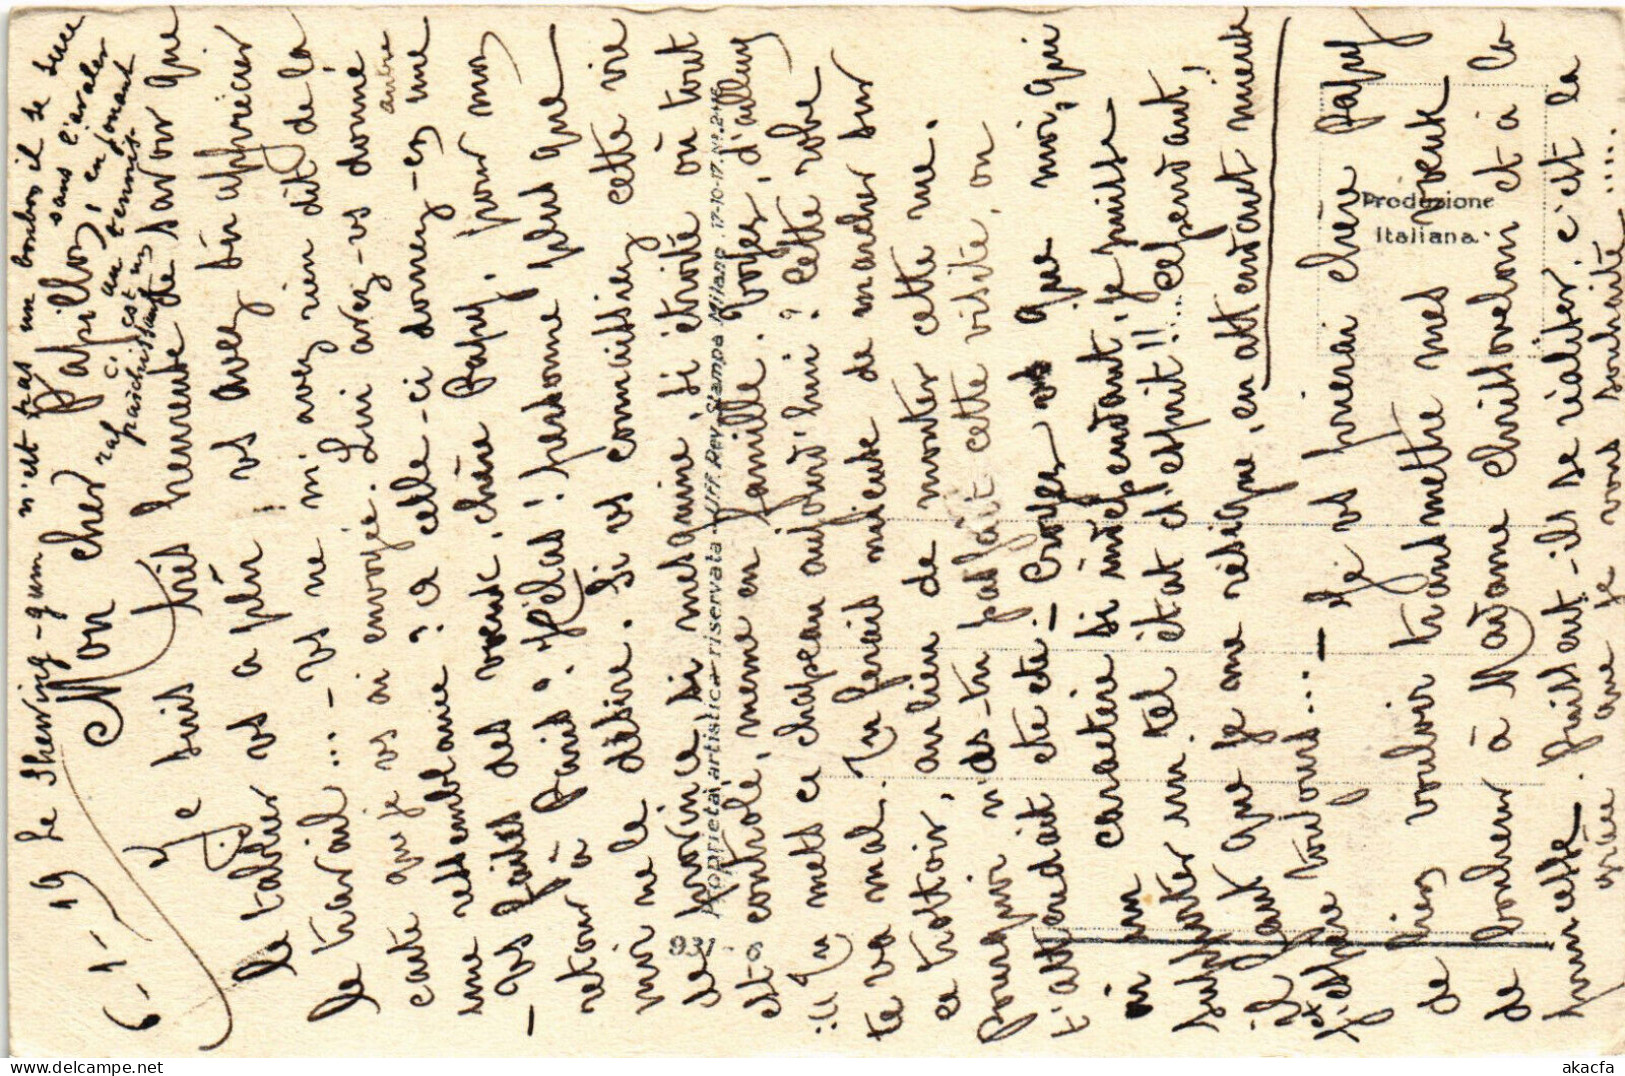 6-1-19 Le Shewing-gum n'est pas un bonbon il se suce
sans l'avaler
Mon cher Papillon, ci en jouant
au tennis
c'est
Je suis très heureuse de savoir que
le tablier vs a plu vs avez su apprécier
le travail ... - vs ne m'avez rien dit de la
carte que je vs ai envoyée. Lui avez-vs donné
autre
une ressemblance ? à celle-ci donnez-en une
- Vs faites des vœux, chère Papy, pour mon
retour à Paris. Hélas ! personne plus que
moi ne le désire. Si vs connaissiez cette vie
de province, si mesquine, si étroite où tout
est contrôlé, même en famille. Voyez, d'ailleurs
: Tu mets ce chapeau aujourd'hui ? Cette robe
te va mal. Tu ferais mieux de marcher sur
ce trottoir, au lieu de monter cette rue.
Pourquoi n'as-tu pas fait cette visite, on
t'attendait etc etc - Croyez vs que moi, qui
ai un caractère si indépendant, je puisse
supporter un tel état d'esprit !! ... Cependant,
il faut que je me résigne, en attendant mieux
et
j'espère toujours ... - Je vs prierai chère Papy
de bien vouloir transmettre mes vœux
de bonheur à Madame Chuissovelom et à Co
princesse. Puissent-ils se réaliser, c'est la
grâce que je vous souhaite ....
931-8
Proprietà artistica riservata - Uff. Rev. Stampa Milano 17-10-17. N°. 2116
Produzione
Italiana.
akacfa